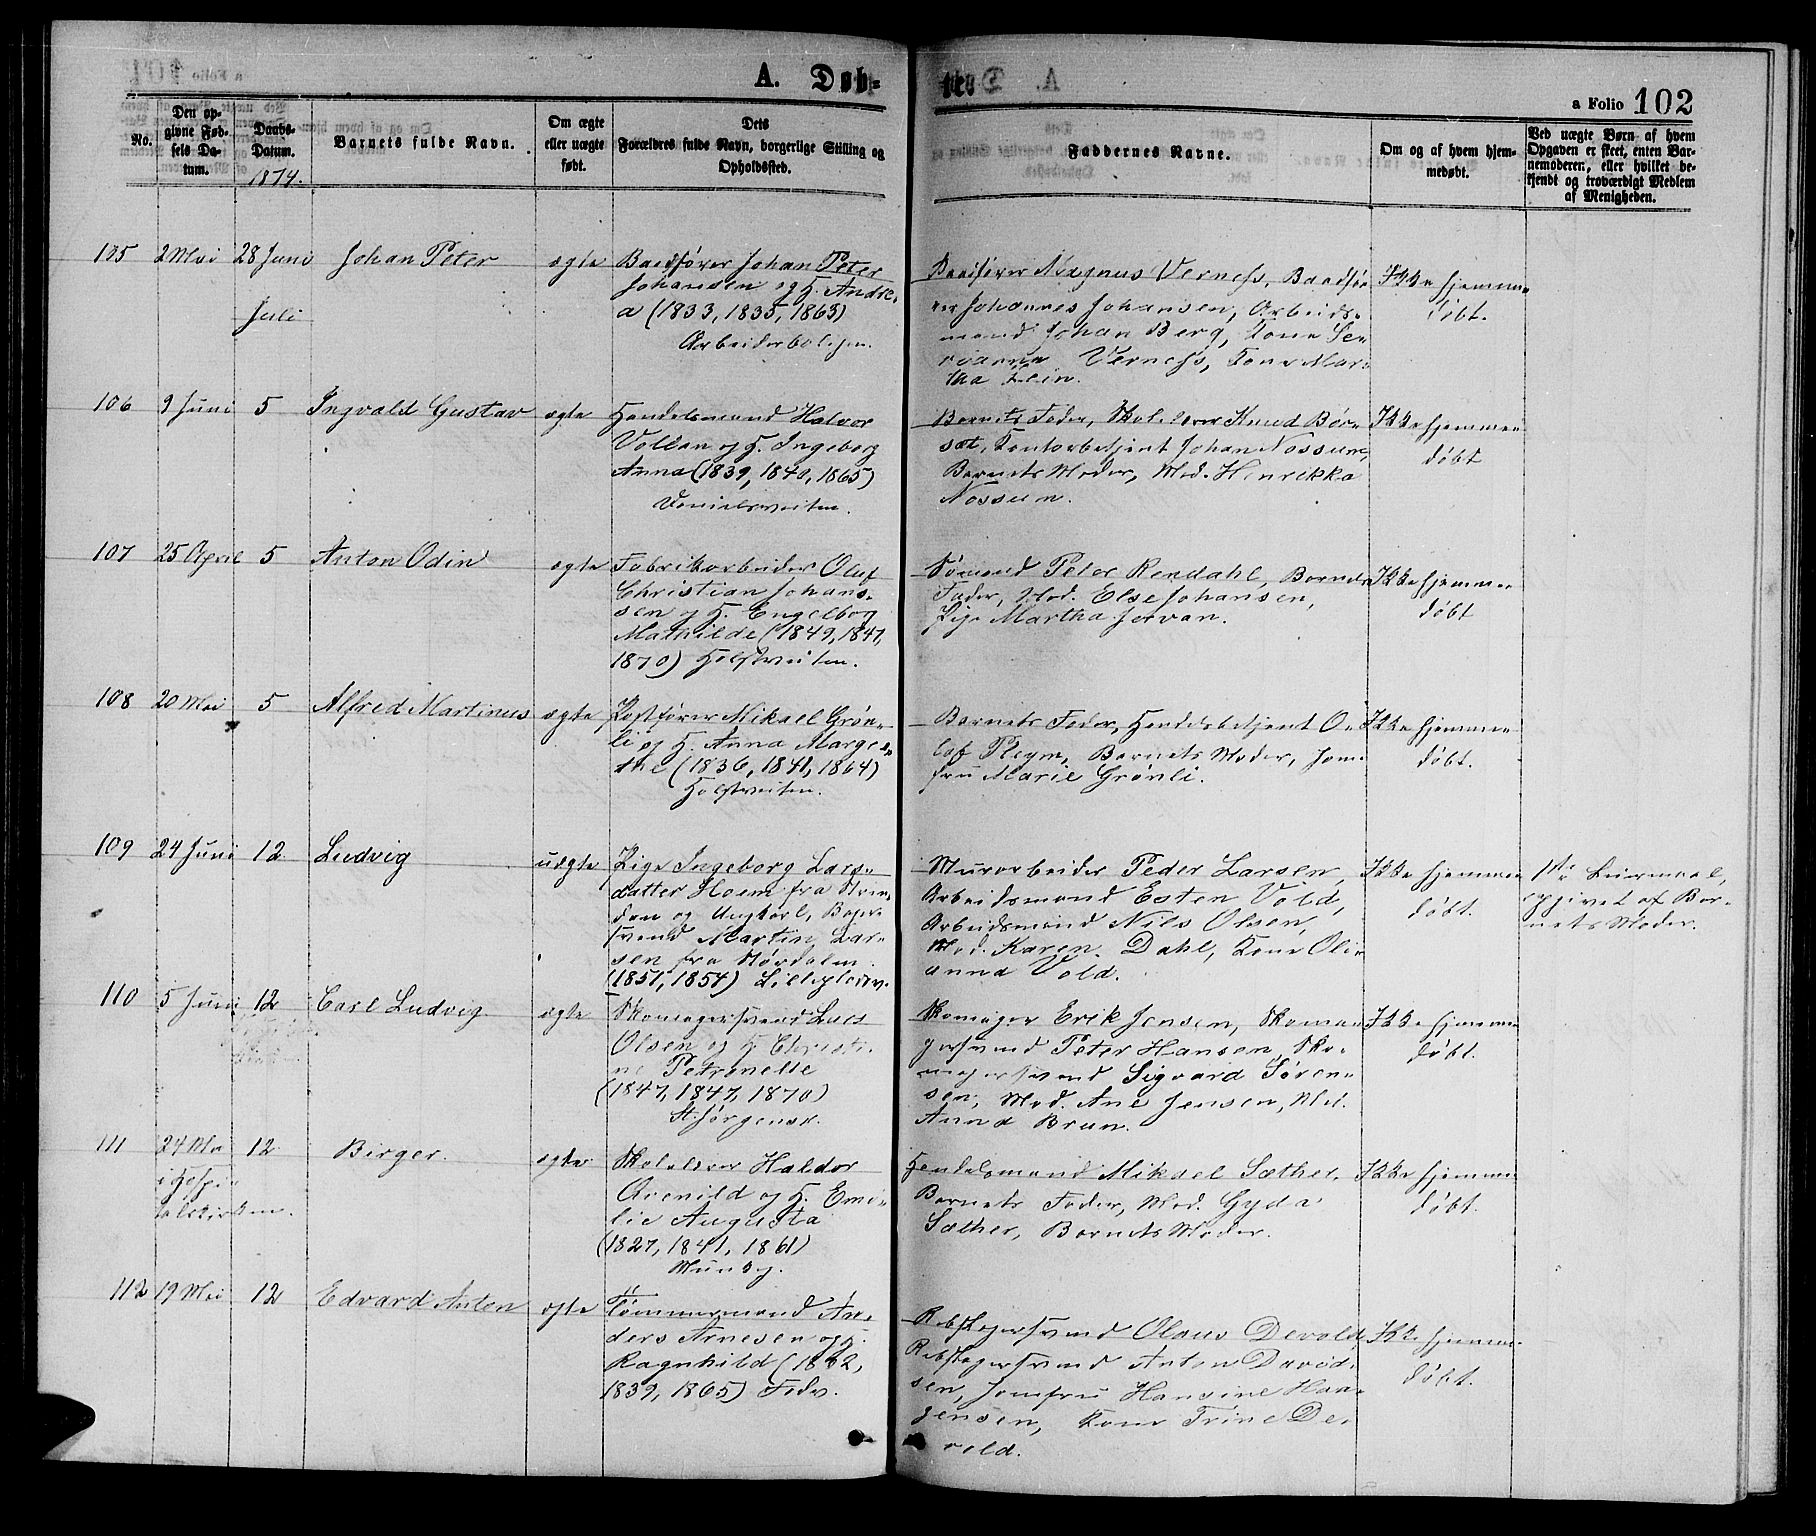 A. Døb-
te.
a Folio 102
No.
Den op-
givne Fød-
sels Da-
tum.
Daabs-
Datum.
1874.
Barnets fulde Navn.
Om ægte
eller uægte
født.
Dets
Forældres fulde Navn, borgerlige Stilling og
Opholdssted.
Faddernes Navne.
Om og af hvem hjem-
medøbt.
Ved uægte Børn af hvem
Opgaven er skeet, enten Bar-
nemoderen, eller hvilket be-
kjendt og troværdigt Medlem
af Menigheden.
105 2 Mai 28 Juni Johan Peter ægte
Juli
Baadfører Johan Peter
Johansen og H. Andre-
a (1833, 1835, 1863)
Arbeiderboligen.
Baadfører Magnus Verness, Baadfø-
rer Johannes Johansen, Arbeids-
mand Johan Berg, Kone
Verness, Kone Mar-
tha
Ikke hjemme-
døbt.
106 9 Juni 5 Ingvald Gustav ægte
Handelsmand Halvor
Vollan og H. Ingeborg
Anna (1839, 1840, 1865)
Danielsveiten.
Barnets Fader, Skolelærer Knud Bør-
sæt, Kontorbetjent Johan Nossum,
Barnets Moder, Mad. Henrikka
Nossum.
Ikke hjemme-
døbt
107 25 April 5 Anton Odin ægte
Fabrikarbeider Oluf
Christian Johans-
sen og H. Engelborg
Mathilde (1849, 1847,
1870) Holstveiten.
Sømand Peter Rendahl, Barnets
Fader, Mad. Else Johansen,
Pige Martha Jervan.
Ikke hjemme-
døbt
108 20 Mai 5 Alfred Martinus ægte
Postfører Mikael Grøn-
li og H. Anna Marge-
the (1836, 1841, 1864)
Holstveiten.
Barnets Fader, Handelsbetjent O-
laf Pleym, Barnets Moder, Jom-
fru Marie Grønli.
Ikke hjemme-
døbt.
109 24 Juni 12 Ludvig uægte
Pige Ingeborg Lars-
datter Hoem fra Strin-
den og Ungkarl, Bager-
svend Martin Lar-
sen fra Størdalen.
(1851, 1854)
Murarbeider Peder Larsen,
Arbeidsmand Esten Vold,
Arbeidsmand Nils Olsen,
Mad. Karen Dahl, Kone Oli-
anna Vold.
Ikke hjemme-
døbt.
1ste Leiermaal,
opgivet af Bar-
nets Moder.
110 5 Juni 12 Carl Ludvig ægte
Skomagersvend Lars
Olsen og H. Christi-
ne Petronelle
(1847, 1847, 1870)
St. Jørgensv.
Skomager Erik Jensen, Skoma-
gersvend Peter Hansen, Sko-
magersvend Sigvard Søren-
sen, Mad. Ane Jensen, Mad.
Anna Brun.
Ikke hjemme-
døbt.
111 24 Mai 12 Birger. ægte
i Hospi-
talskirken.
Skolelærer Haldor
Qvenild og H. Emi-
lie Augusta
(1827, 1841, 1861)
Munkg.
Handelsmand Mikael Sæther,
Barnets Fader, Mad. Gyda
Sæther, Barnets Moder.
Ikke hjemme-
døbt.
112 19 Mai 12 Edvard Anton ægte
Tømmermand An-
ders Arnesen og H.
Ragnhild (1842,
1839, 1865)
Rebslagersvend Olaus Devold,
Rebslagersvend Anton David-
sen, Jomfru Hansine Haa-
gensen, Kone Trine De-
vold.
Ikke hjemme-
døbt.